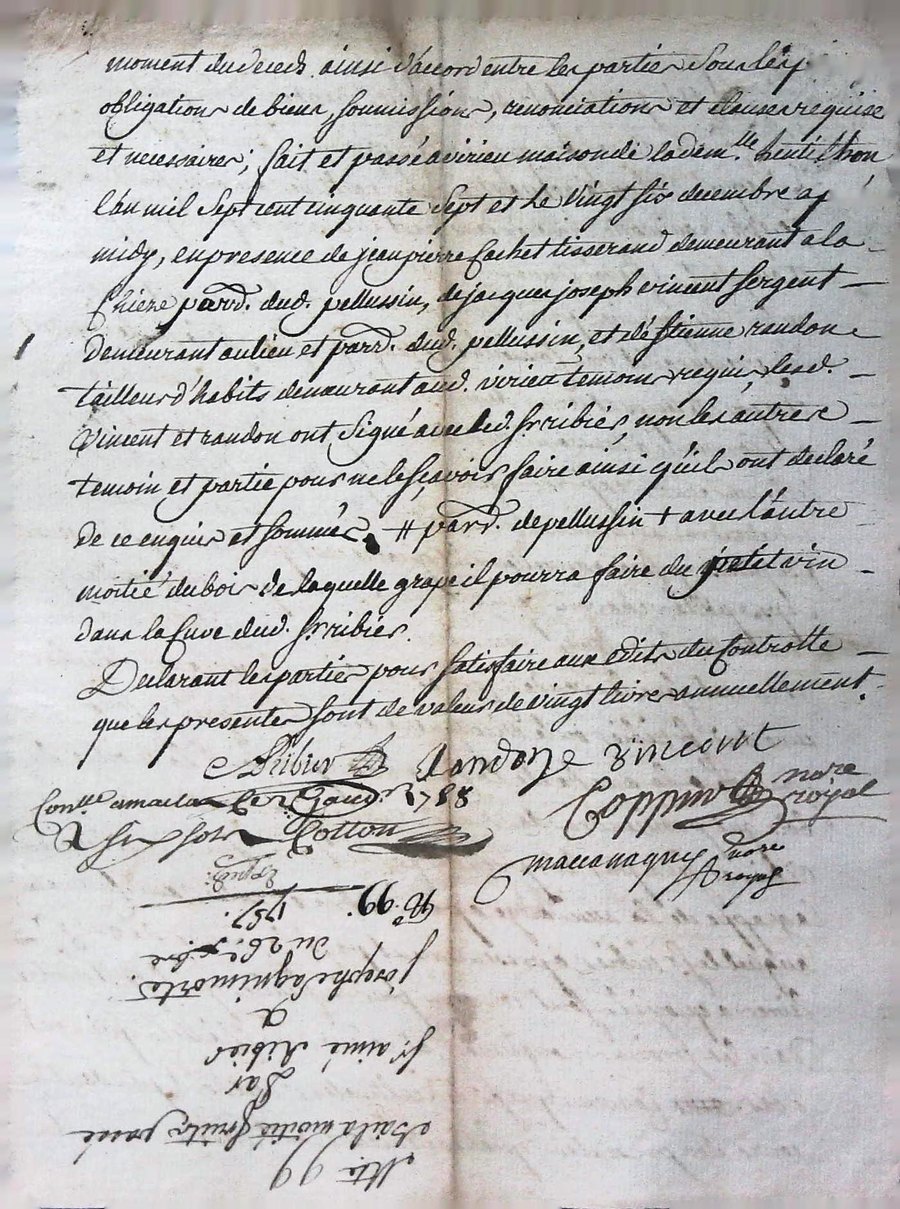 moment du deced. ainsi d'accord entre les parties sous les
obligations de biens, soumissions, renonciations et clauses requise
et necessaires; fait et passé a virieu maison de la dem.lle
l'an mil sept cent cinquante sept et le vingt six decembre ap
midy, en presence de jean pierre cachet tisserand demeurant a la
parr. dud. pellussin, de jacques joseph vincent sergent
demeurant au lieu et parr. dud. pellussin, et d'estienne randon
tailleur d'habits demeurant aud. virieu temoins requis lesd.
vincent et randon ont signé avec led. sr. ribier, non les autres
temoin et partie pour ne le sçavoir faire ainsi qu'ils ont declaré
de ce enquis et sommés. # parr. de pellussin + avec l'autre
moitié du bois de laquelle grape il pourra faire du petit vin
dans la cuve dud. sr. ribier.
Declarant les parties pour satisfaire aux edits du Controlle
que les presentes sont de valeur de vingt livres annuellement.
Ribier Randon J vincent
Con.lle a maclas le 1758
Coppin nore
royal
Cotton
nore
royal
N.º 99.
Exped.
1757.
du 26. xbre
joseph
a
Sr. aimé Ribier
Par
a la moitié fruits passé
99